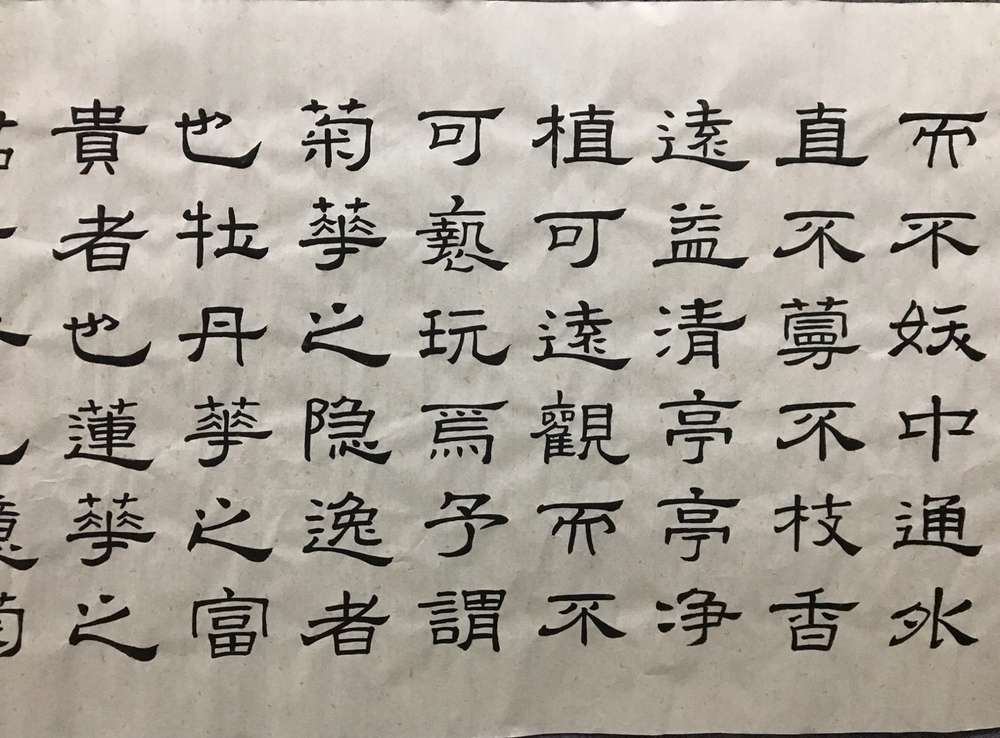 而不妖中通外
直不蔓不枝香
遠益清亭亭净
植可遠觀而不
可褻玩焉予謂
菊華之隐逸者
也牡丹華之富
貴者也蓮華之